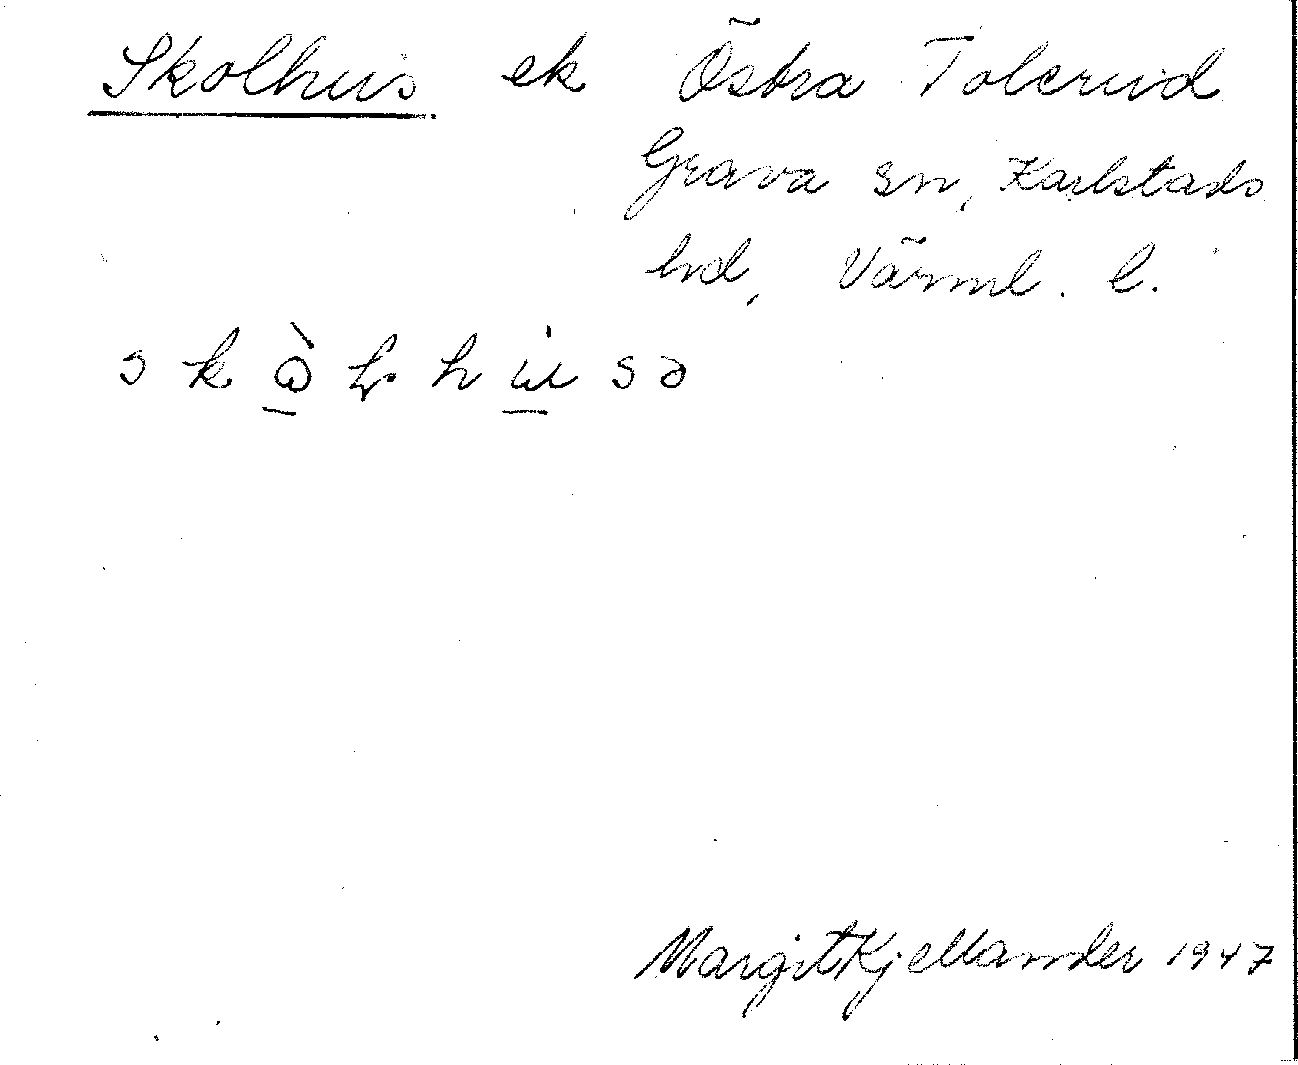 Skolhus ek Östra Tolerud
Grava sn, Karlstads
hd, Värml. l.
Margit Kjellander 1947